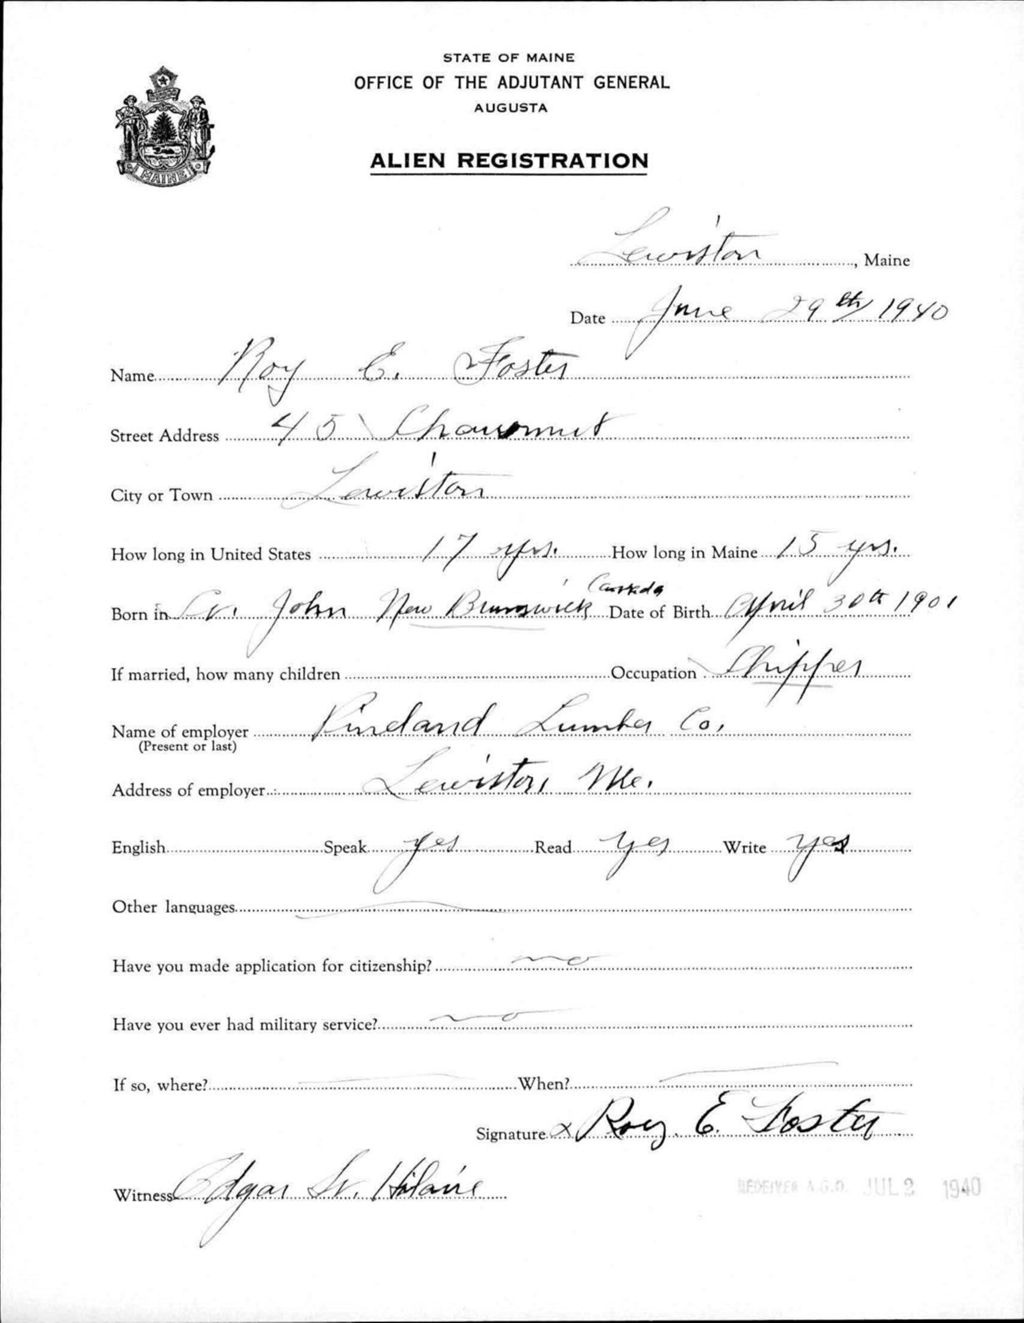 STATE OF MAINE
OFFICE OF THE ADJUTANT GENERAL
AUGUSTA
MAINE
ALIEN REGISTRATION
Lewiston, Maine
Date June 29th 1940
Name Roy E. Foster
Street Address 45
City or Town Lewiston
How long in United States 17 yrs. How long in Maine 15 yrs.
Born in St. John New Brunswick Canada Date of Birth April 30th 1901
If married, how many children Occupation Shipper
Name of employer Pineland Lumber Co.
(Present or last)
Address of employer Lewiston, Me.
English Speak yes Read yes Write yes
Other languages
Have you made application for citizenship? no
Have you ever had military service? no
If so, where? When?
Signature x Roy. E. Foster
Witness Edgar St. Hilaire
RECEIVED A.G.O. JUL 2 1940